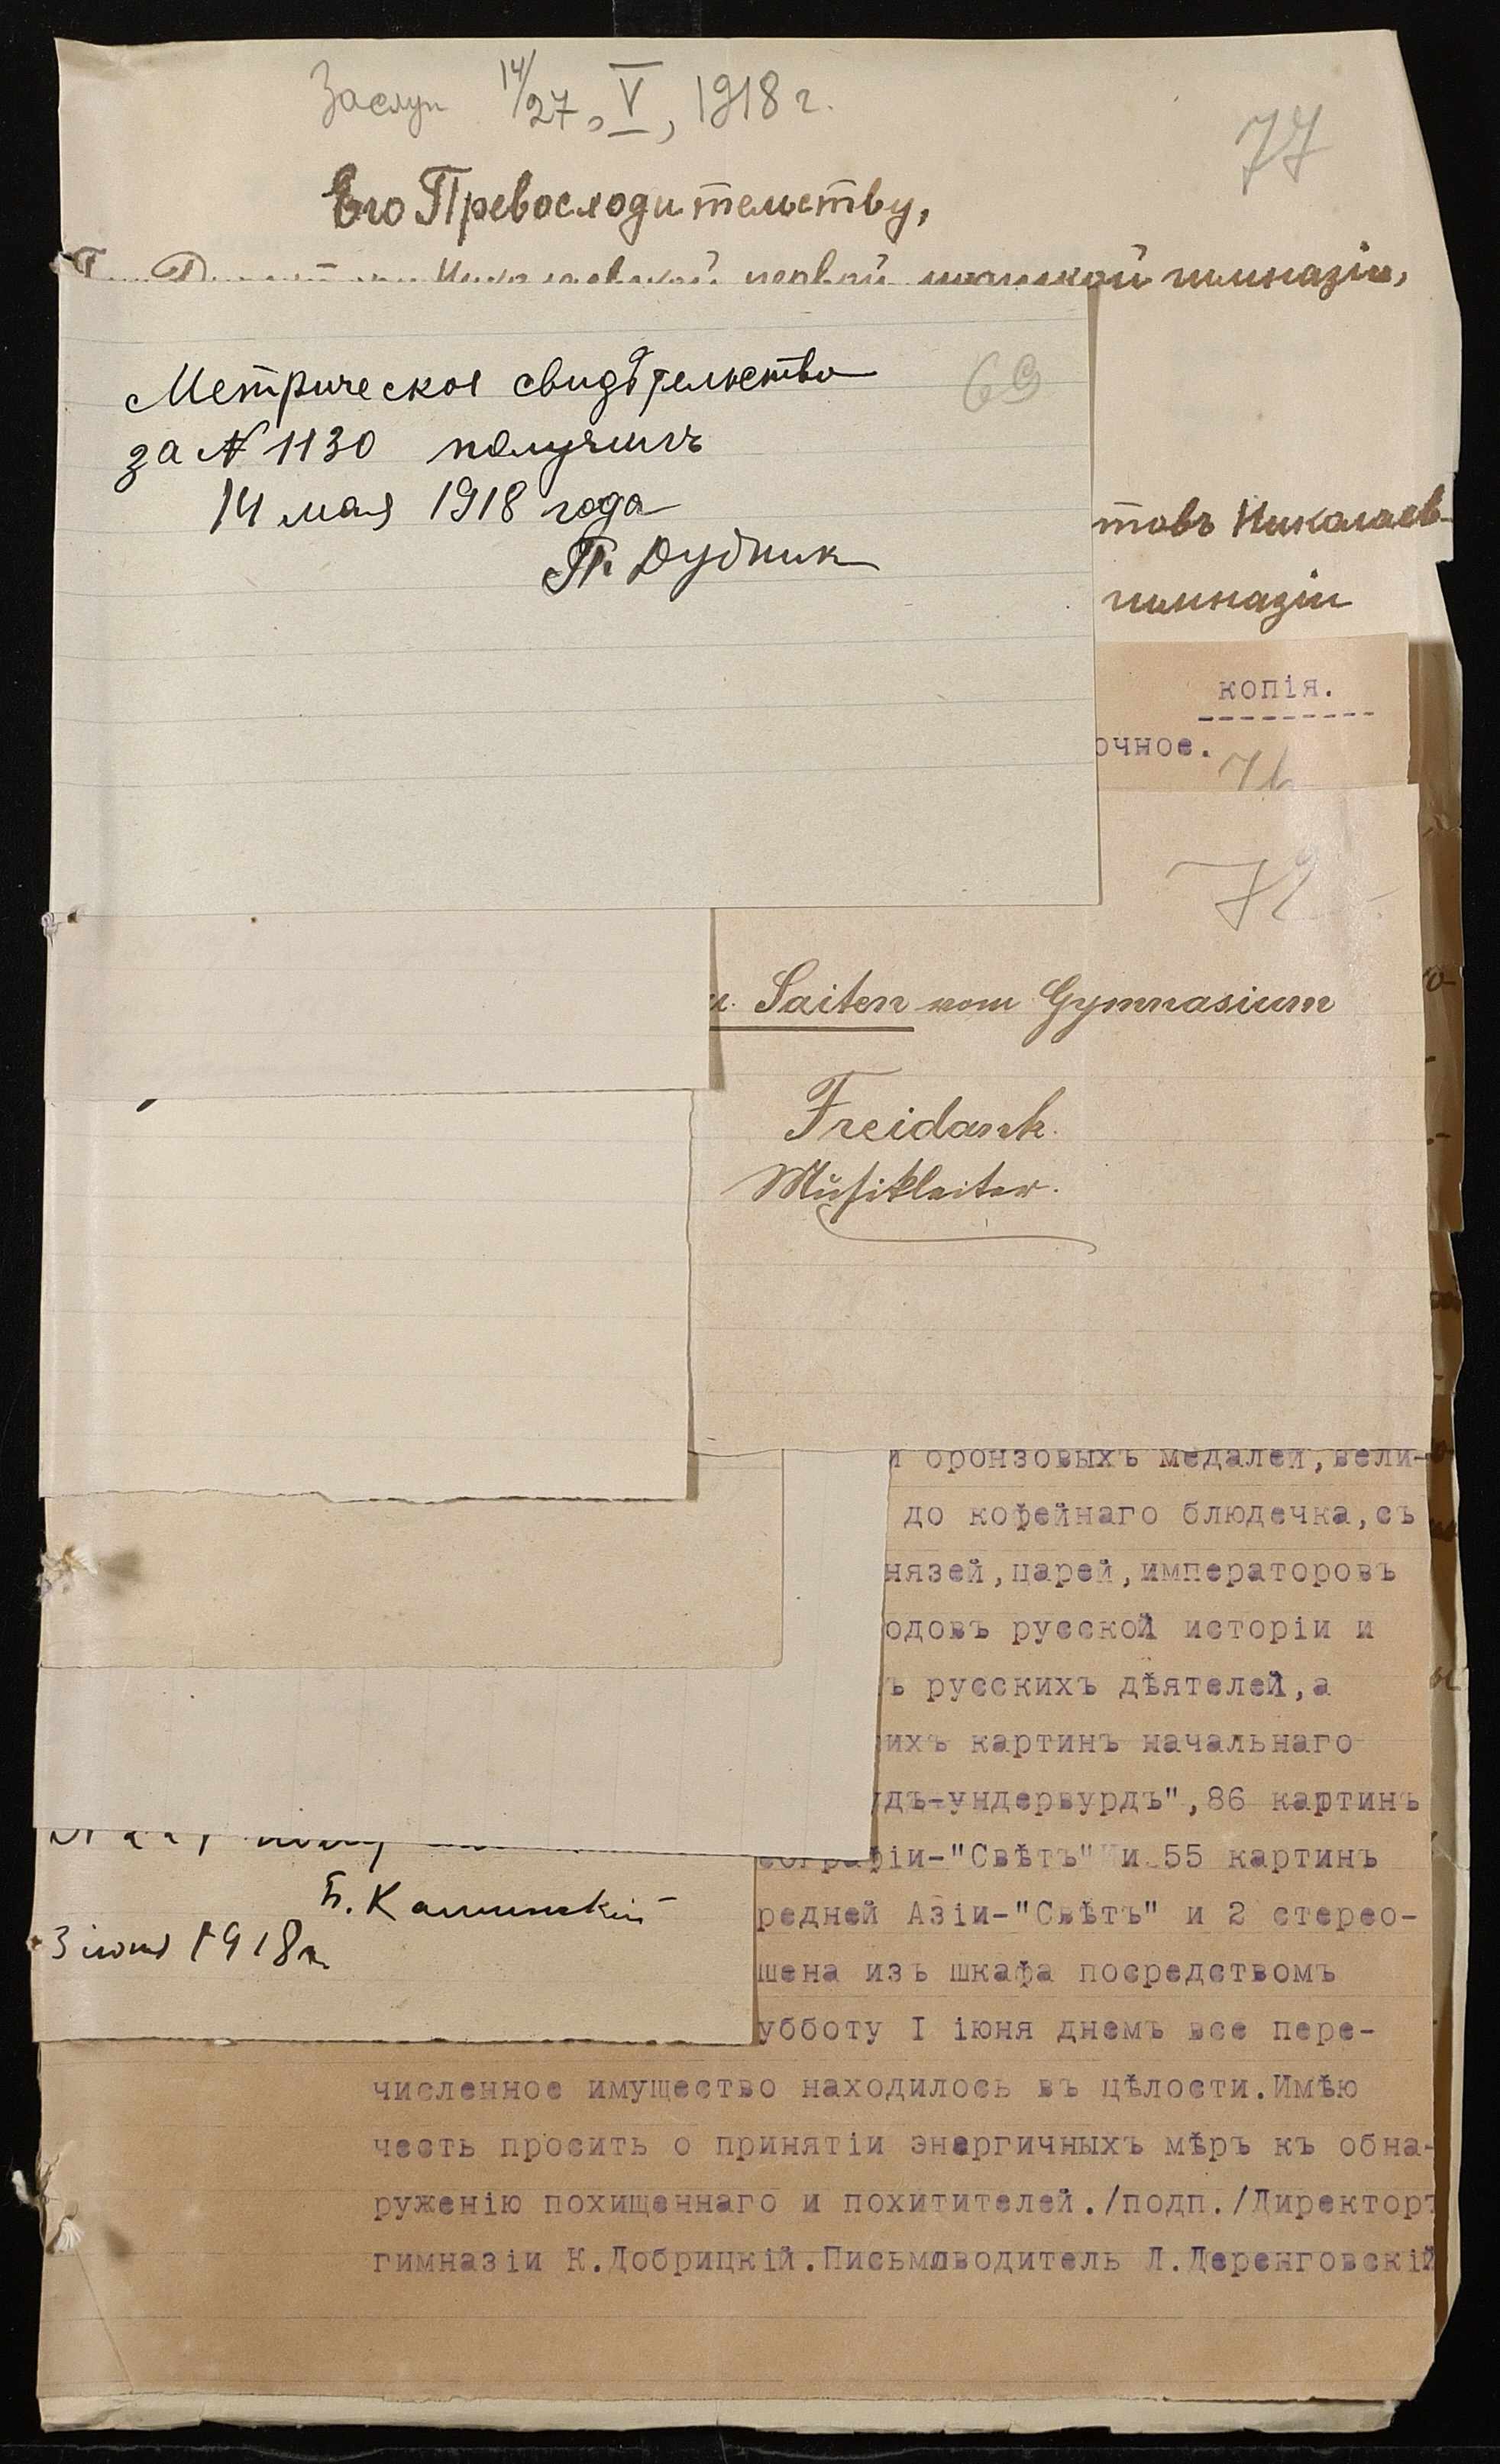 14/27, V, 1918 г.
77
Его Превосходительству,
гимназіи,
Метрическое свидѣтельство
69
за № 1130 получилъ
14 мая 1918 года
товъ Николаев-
Дудник
гимназіи
копія.
очное.
72
Saiten vom Gymnasium
Freidank.
Musikleiter.
и бронзовыхъ медалей,вели-
до кофейнаго блюдечка,съ
нязей,царей,императоровъ
одовъ русской исторіи и
ъ русскихъ дѣятелей,а
ихъ картинъ начальнаго
дъ-ундервурдъ",86 картинъ
еографіи-"Свѣтъ" и 55 картинъ
Б.
редней Азіи-"Свѣтъ" и 2 стерео-
3 1918 г.
шена изъ шкафа посредствомъ
убботу I іюня днемъ все пере-
численное имущество находилось въ цѣлости.Имѣю
честь просить о принятіи энергичныхъ мѣръ къ обна-
руженію похищеннаго и похитителей./подп./Директоръ
гимназіи К.Добрицкій.Письмоводитель Л.Деренговскій